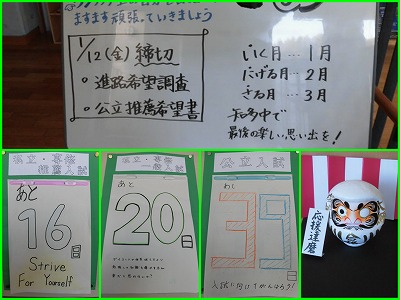 ますます頑張っていきましょう
1/12(金)締切
・進路希望調査
・公立推薦希望書
いく月…1月
にげる月…2月
さる月…3月
知多中で
最後の楽しい思い出を！
私立・専修
推薦入試
あと
16
日
Strive
For Yourself
私立・専修
一般入試
あと
20
日
公立入試
39
日
入試に向けてがんばろう！
応援達磨